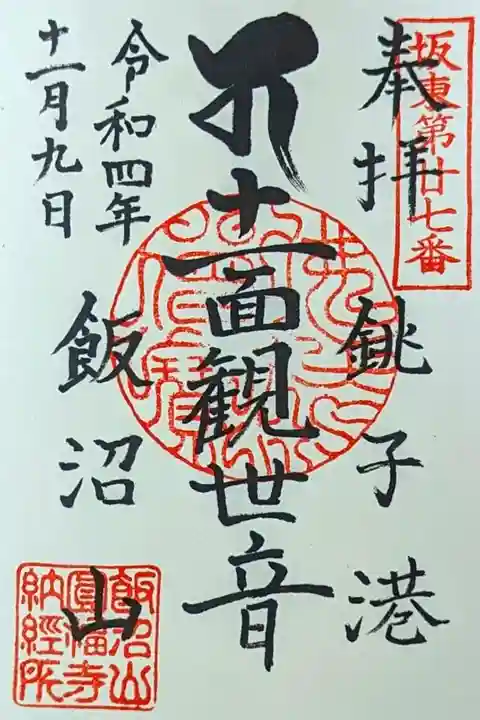 坂東第廿七番
奉拝
銚子港
十一面観世音
令和四年
十一月九日
飯沼山
飯沼山
圓福寺
納経所